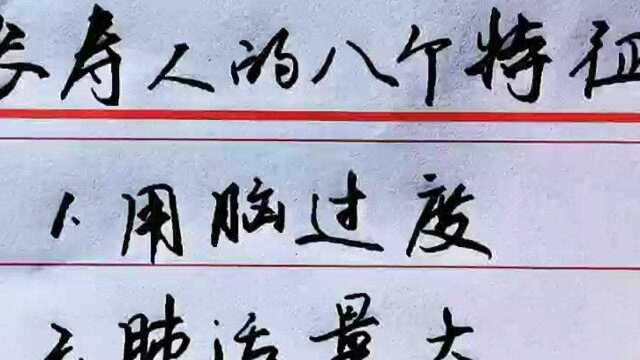 长寿人的八个特征
1.用脑过度
2.肺活量大